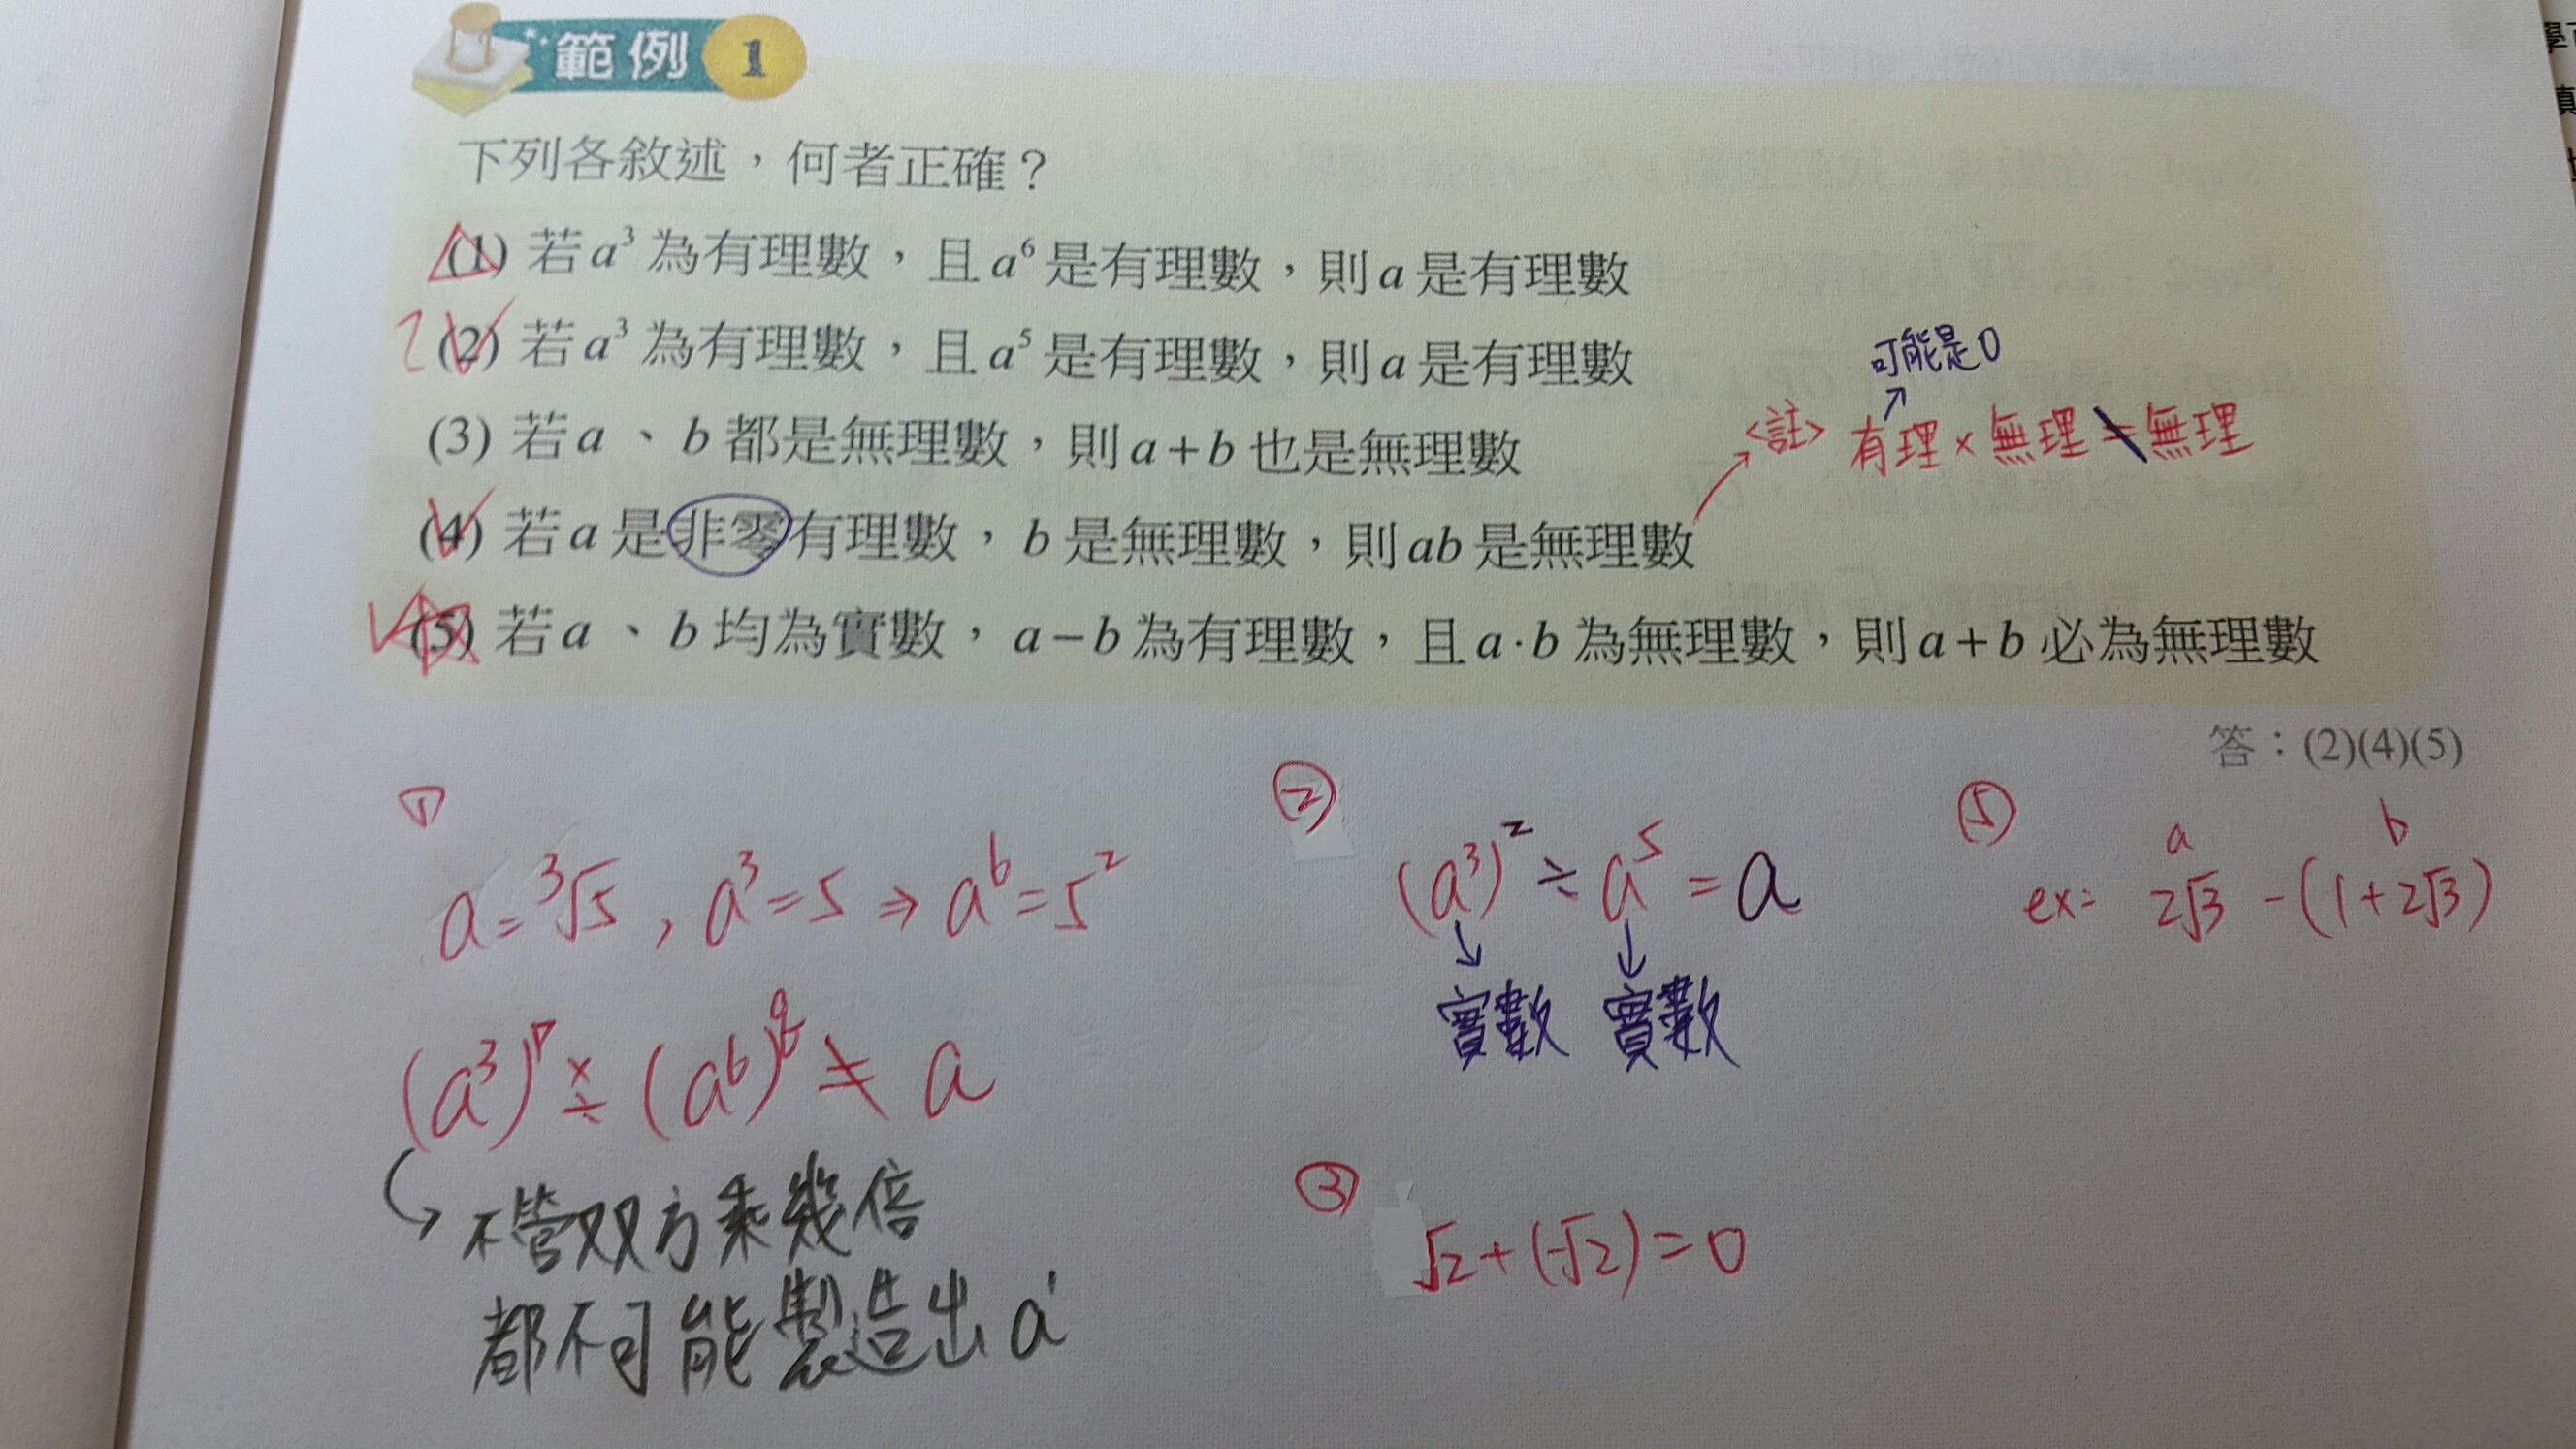 範例 1
下列各敘述，何者正確？
(1) 若 a³ 為有理數，且 a⁶ 是有理數，則 a 是有理數
(2) 若 a³ 為有理數，且 a⁵ 是有理數，則 a 是有理數
(3) 若 a、b 都是無理數，則 a+b 也是無理數
可能是0
<註> 有理×無理≠無理
(4) 若 a 是非零有理數，b 是無理數，則 ab 是無理數
(5) 若 a、b 均為實數，a−b 為有理數，且 a·b 為無理數，則 a+b 必為無理數
答：(2)(4)(5)
①
a=³√5, a³=5 ⇒ a⁶=5²
(a³)ᵖ ×÷ (a⁶)^q ≠ a
不管双方乘幾倍
都不可能製造出 a¹
②
(a³)² ÷ a⁵ = a
實數 實數
③
√2+(-√2)=0
⑤
a b
ex= 2√3 -(1+2√3)